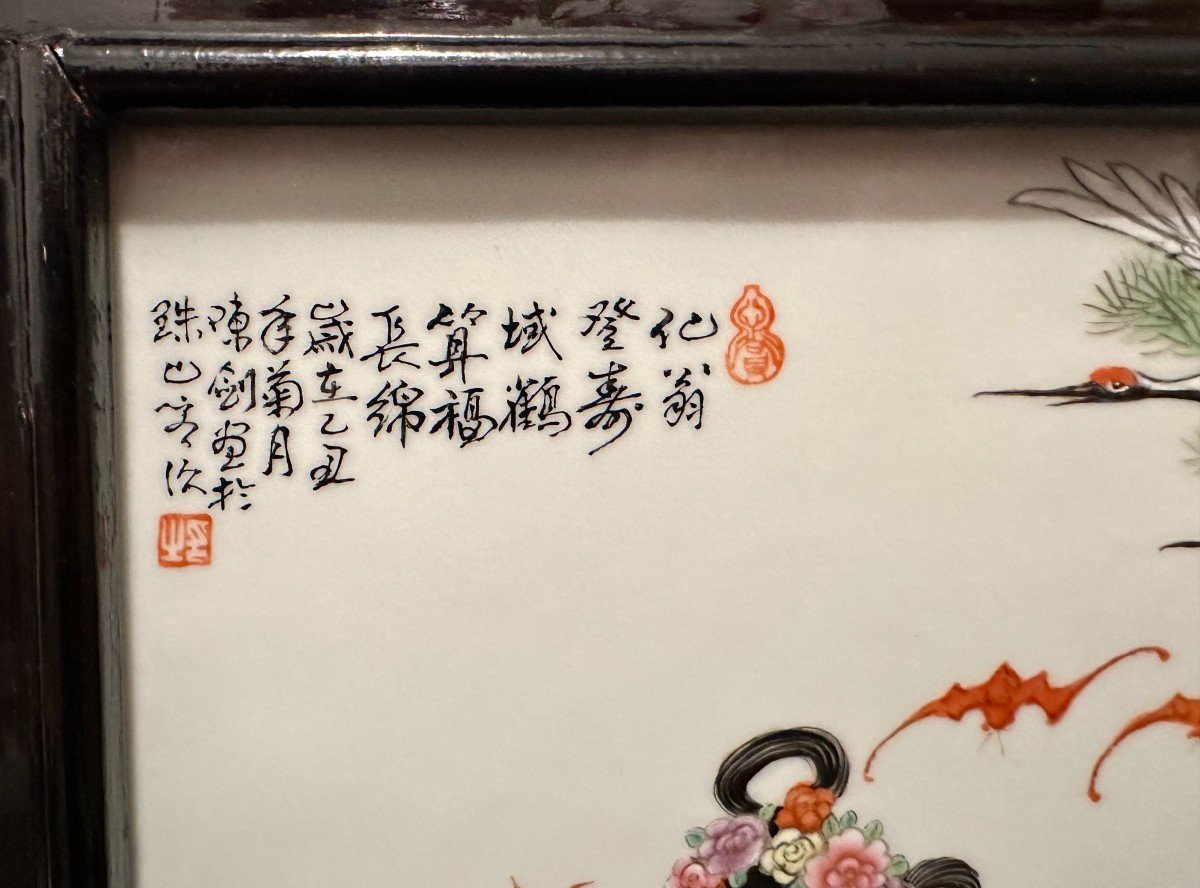 化翁
登壽
域鶴
算福
長綿
歲在乙丑
年菊月
陳劍畫於
珠山客次